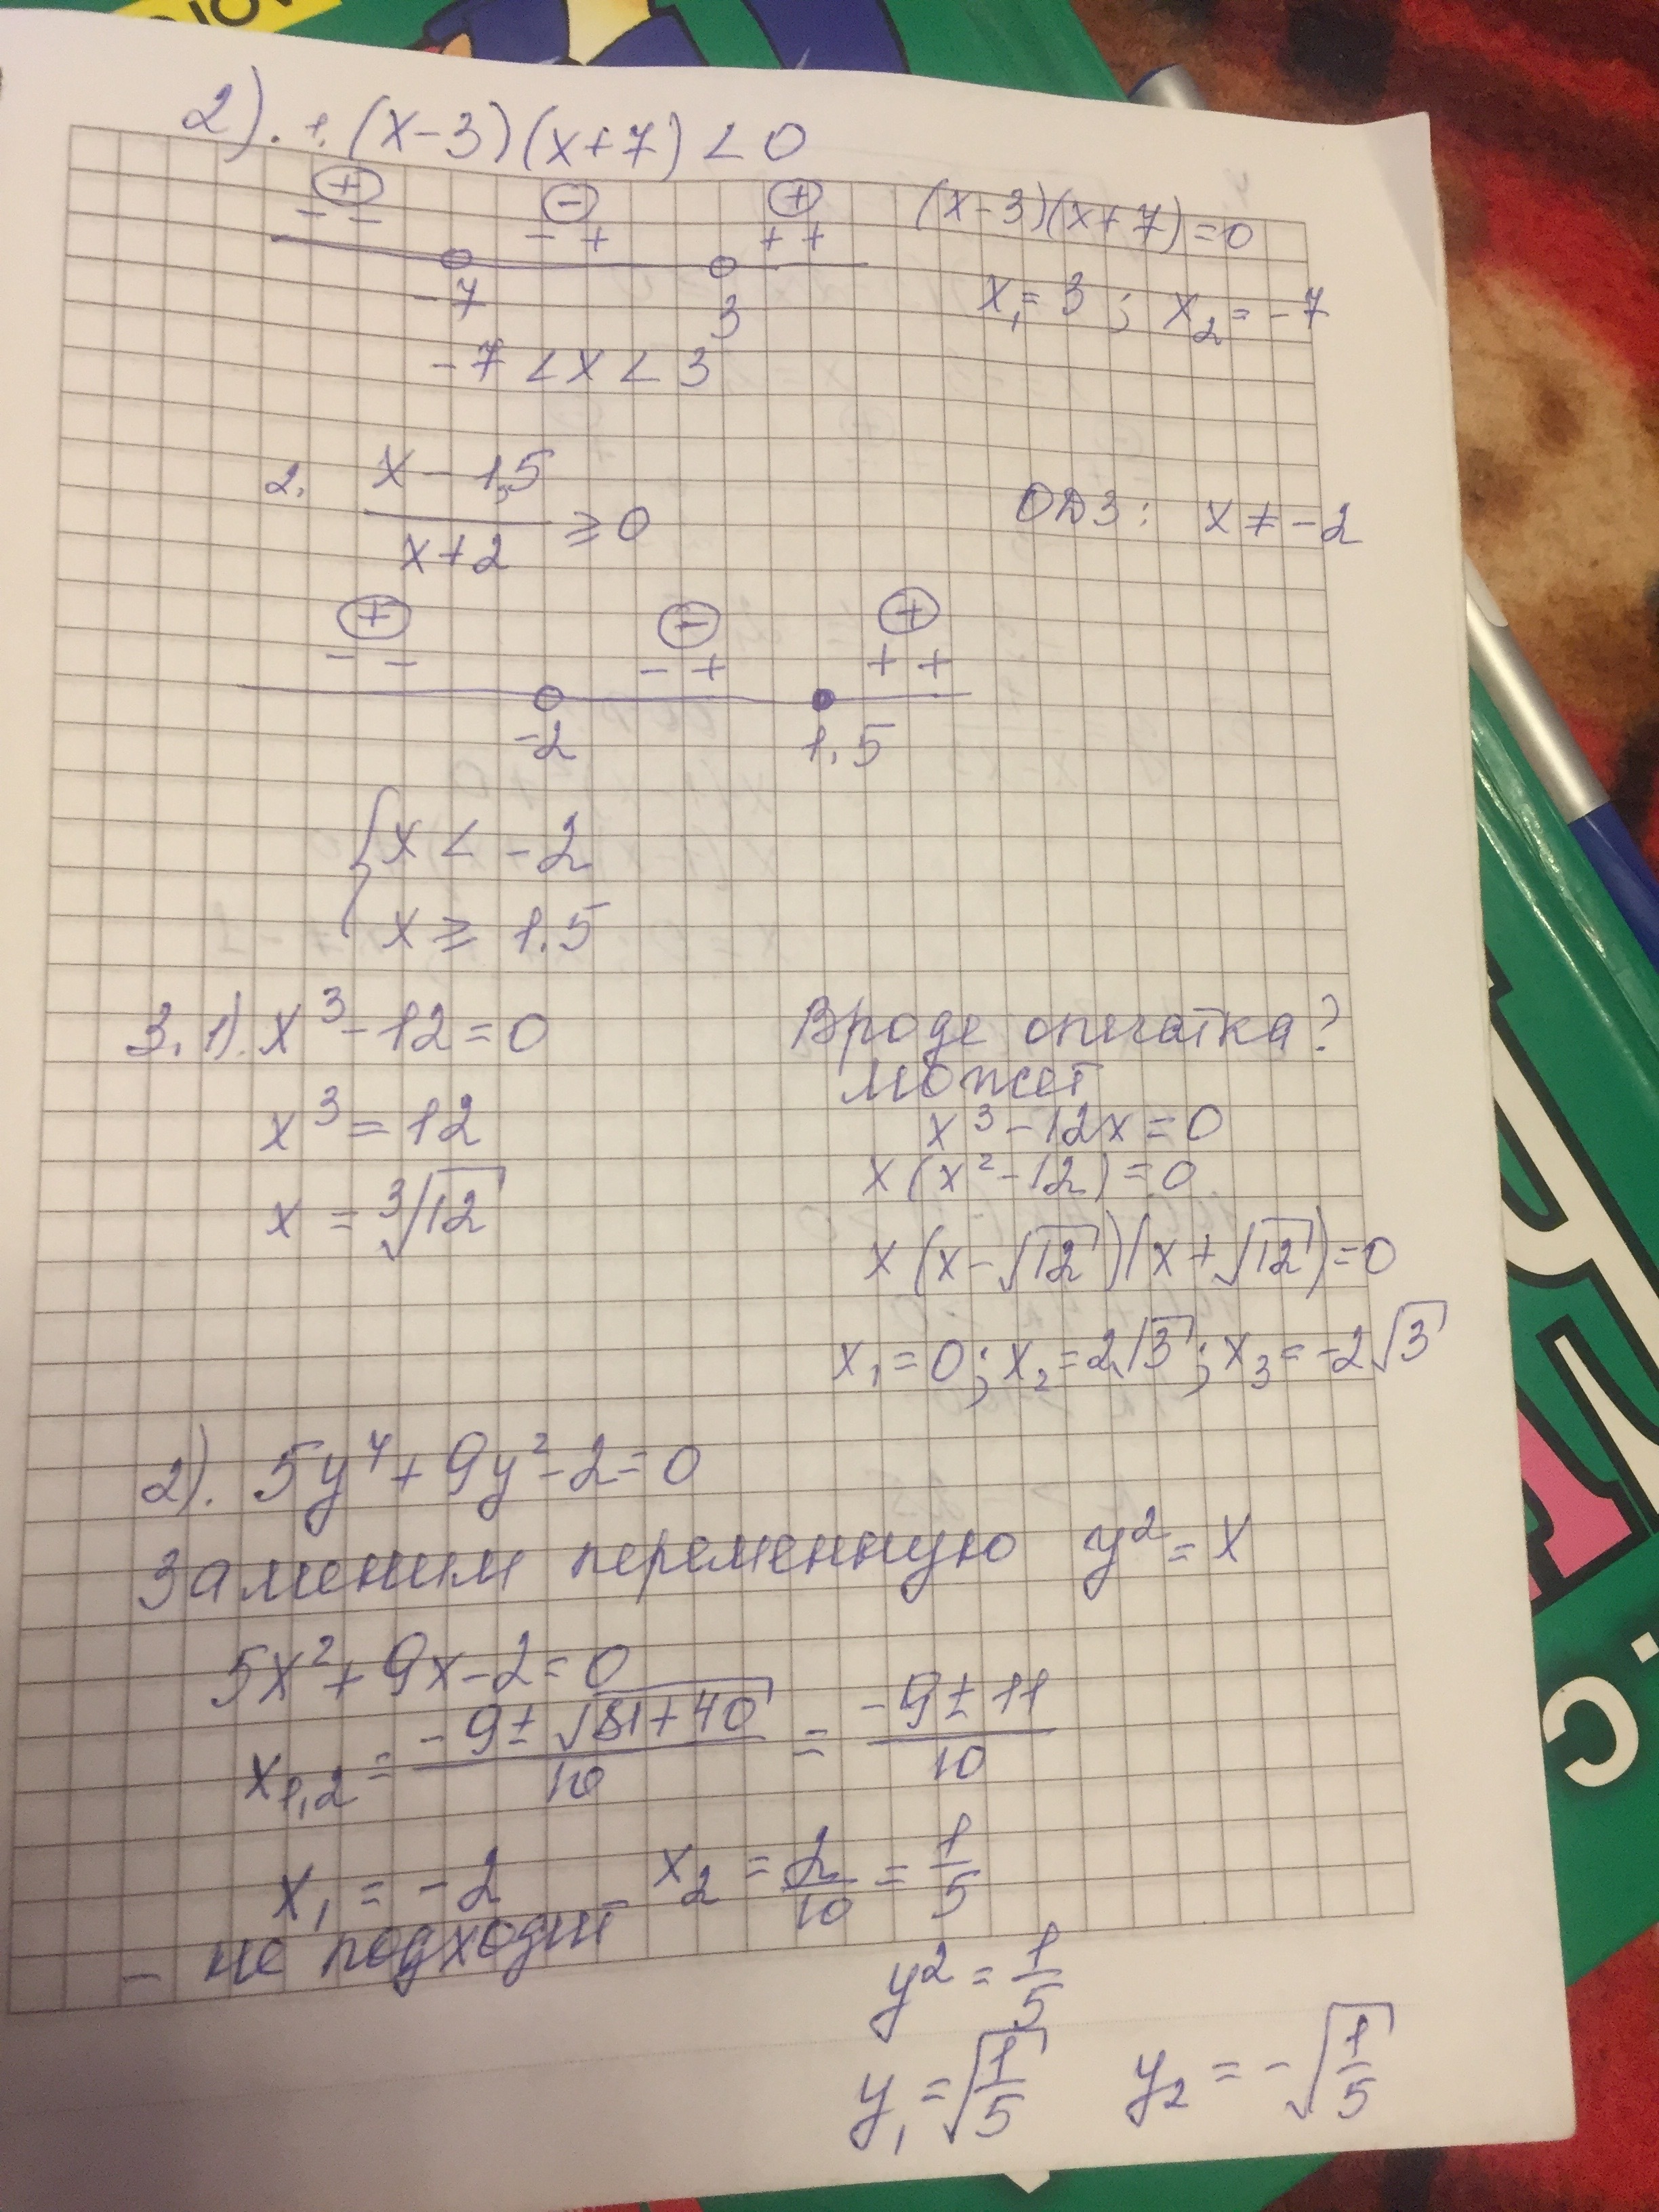 2). 1. (x-3)(x+7) < 0
+ - +
- - - + + +
-7 3
(x-3)(x+7)=0
x₁=3; x₂=-7
-7 < x < 3
2. (x-1,5)/(x+2) ≥ 0
ОДЗ: x ≠ -2
+ - +
- - - + + +
-2 1,5
{x < -2
x ≥ 1.5
3. 1). x³-12=0
x³=12
x = ³√12
Вроде опечатка?
может
x³-12x=0
x(x²-12)=0
x(x-√12)(x+√12)=0
x₁=0; x₂=2√3; x₃=-2√3
2). 5y⁴+9y²-2=0
Заменим переменную y²=x
5x²+9x-2=0
x₁,₂ = (-9±√(81+40))/10 = (-9±11)/10
x₁ = -2 x₂ = 2/10 = 1/5
- не подходит
y² = 1/5
y₁ = √(1/5) y₂ = -√(1/5)